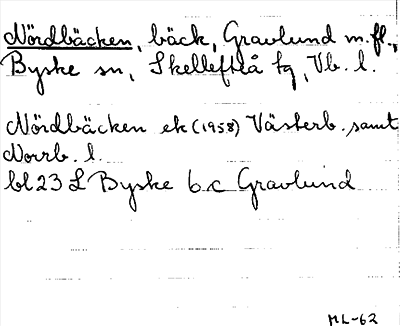 Nördbäcken, bäck, Gravlund m. fl.,
Byske sn, Skellefteå tg, Vb. l.
Nördbäcken ek (1958) Västerb. samt
Norrb. l.
bl 23 L Byske 6 c Gravlund
ML-62